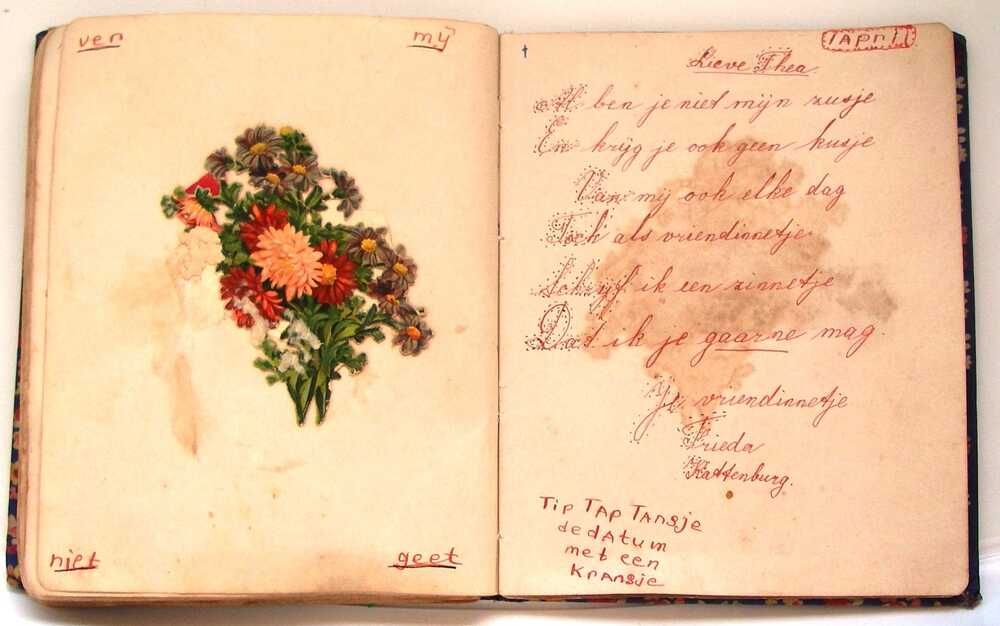 ven my
niet geet
1 April
Lieve Thea
Al ben je niet mijn zusje
En krijg je ook geen kusje
Van mij ook elke dag
Toch als vriendinnetje
Schrijf ik een zinnetje
Dat ik je gaarne mag.
Je vriendinnetje
Frieda
Kattenburg.
Tip TAp TAnsje
de dATum
met een
KrAnsje